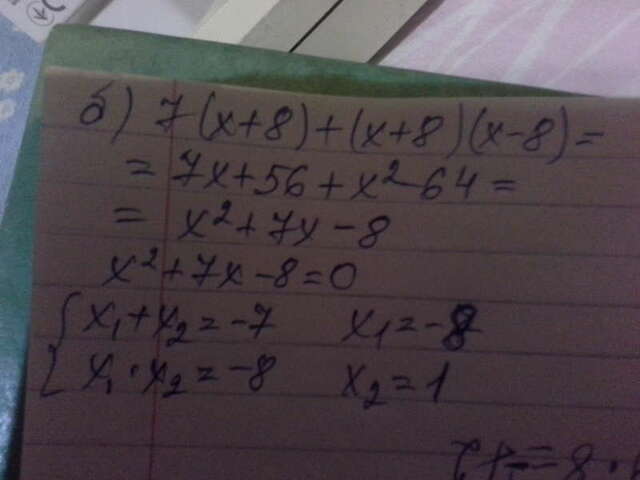 б) 7(x+8)+(x+8)(x-8)=
= 7x+56+x²-64=
= x²+7x-8
x²+7x-8=0
{ x₁+x₂=-7 x₁=-8
x₁·x₂=-8 x₂=1